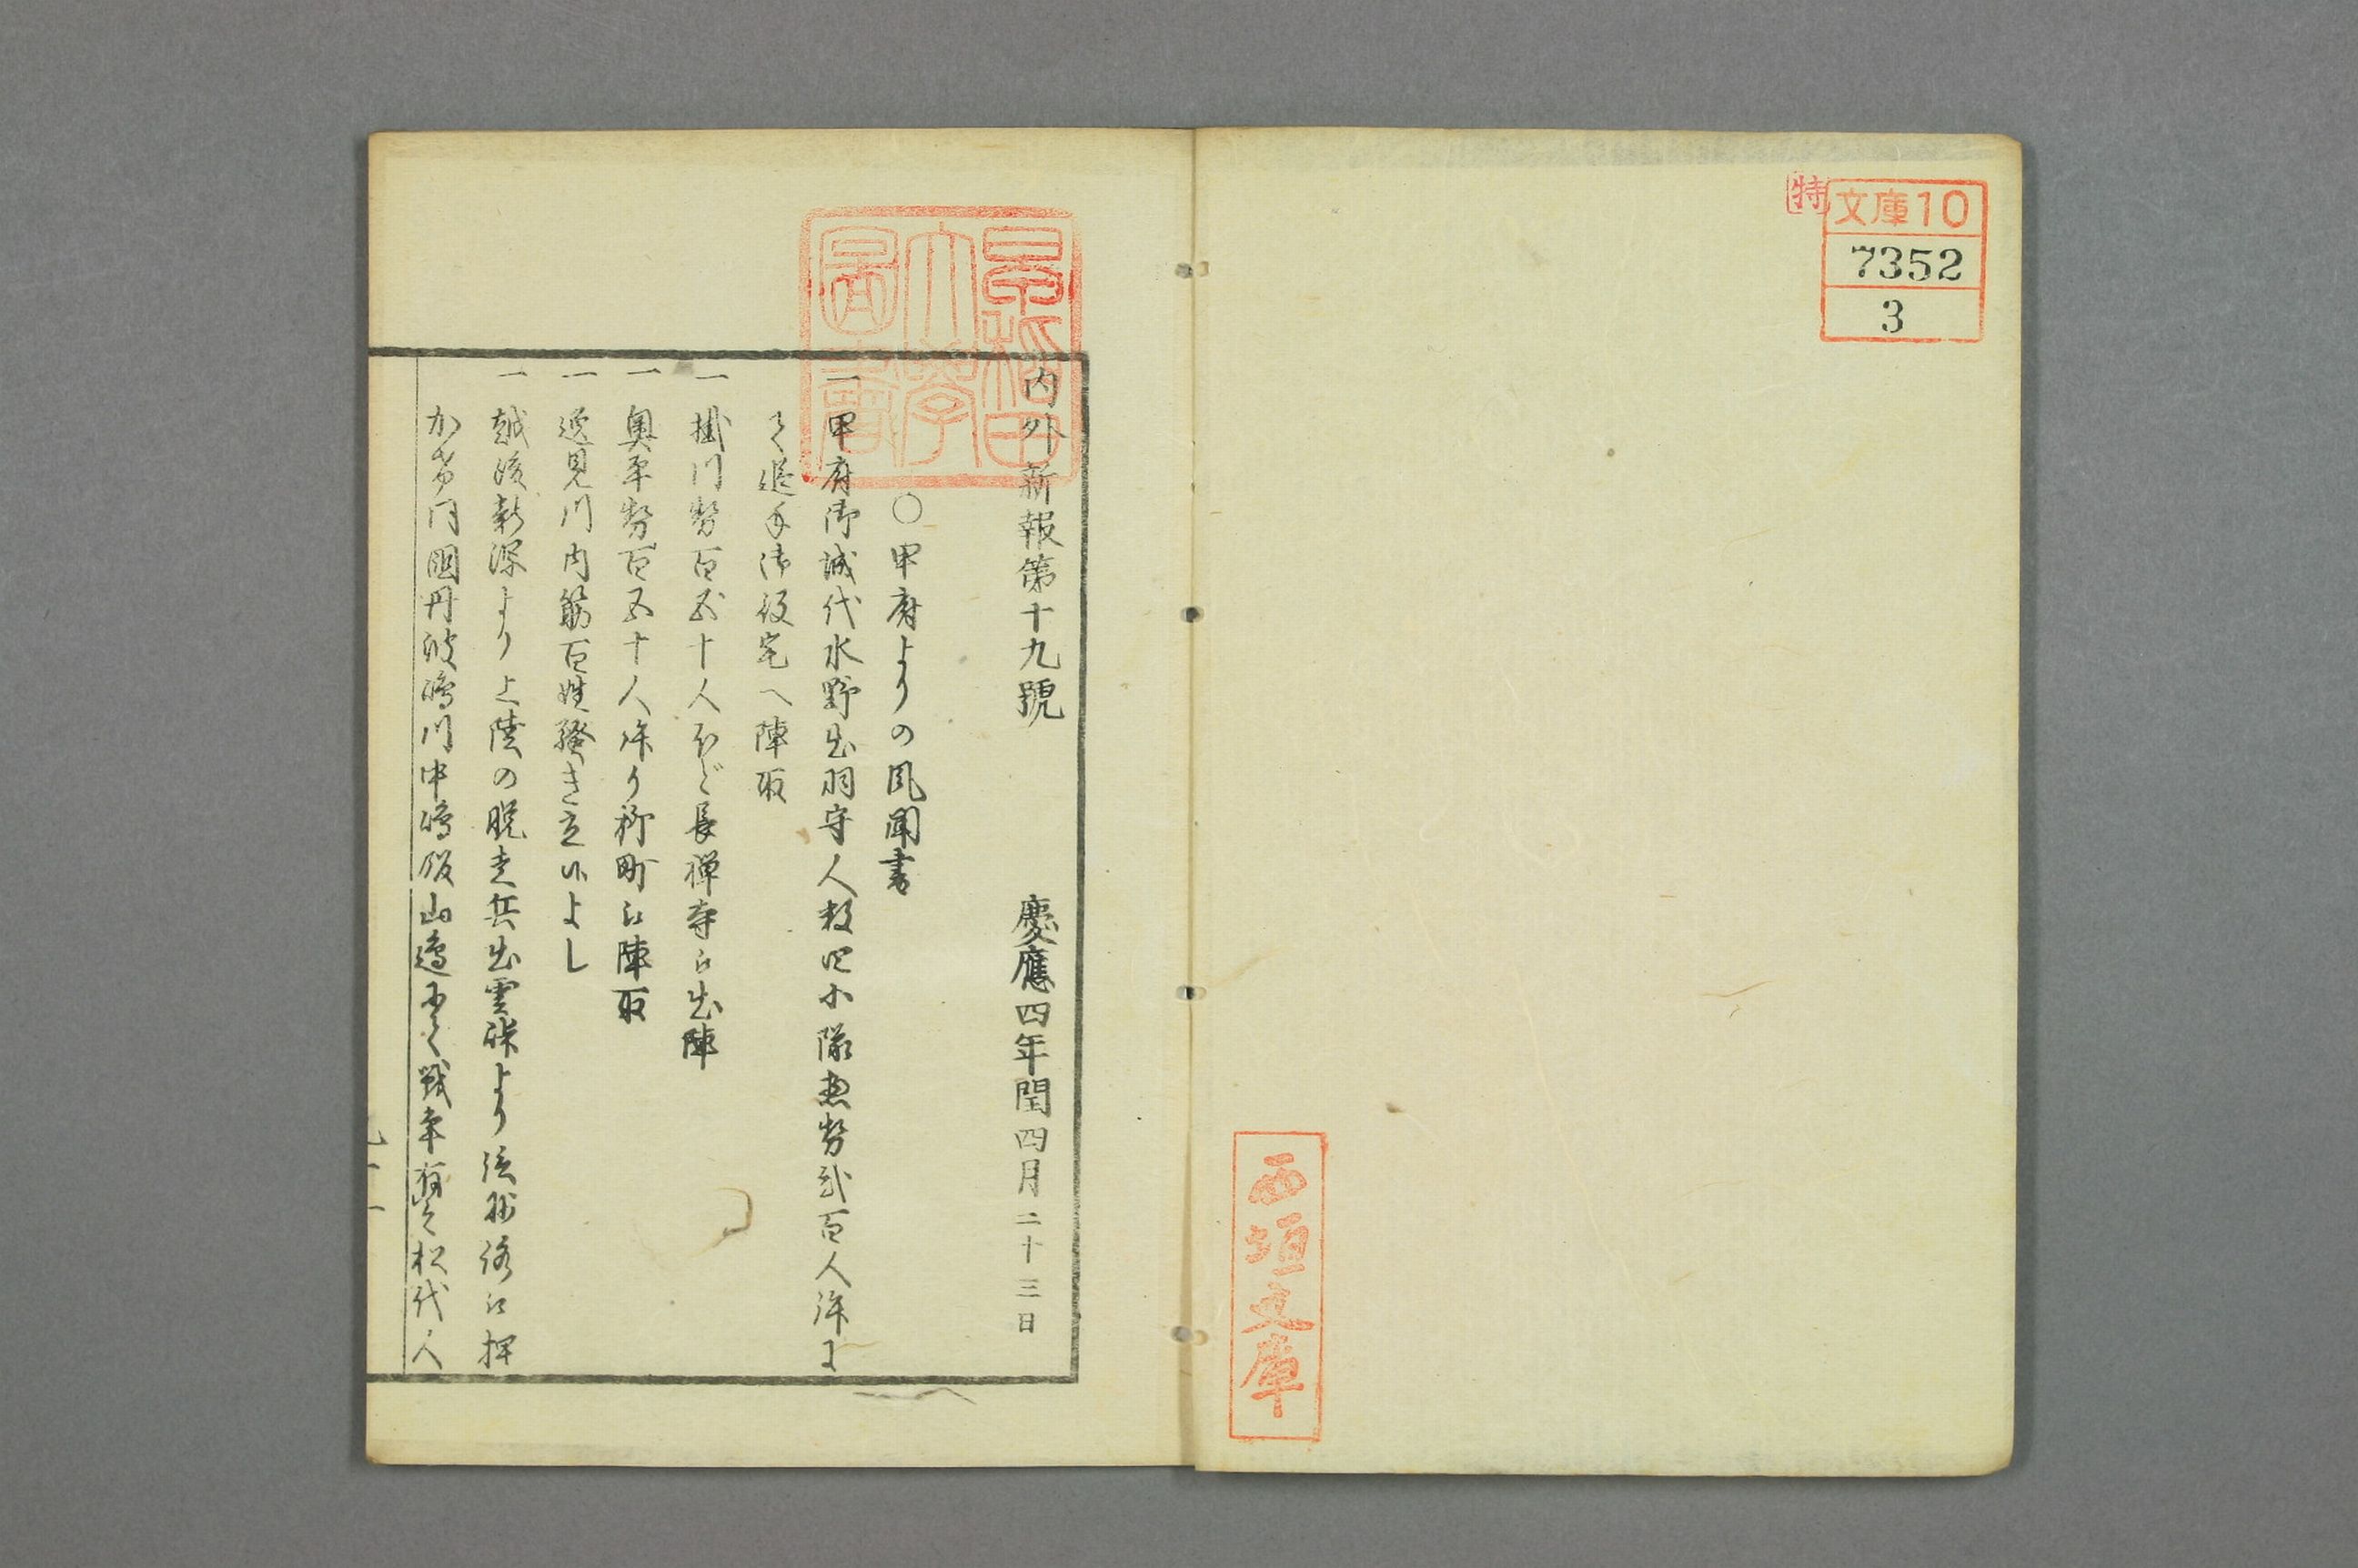 特
文庫10
7352
3
西垣文庫
早稲田
大學
圖書
内外新報第十九號　慶應四年閏四月二十三日
○甲府よりの風聞書
一甲府御城代水野出羽守人数四小隊惣勢弐百人許に
て追手御役宅へ陣取
一掛川勢百五十人ほど長禅寺江出陣
一奥平勢百五十人許り柳町江陣取
一逸見川内筋百姓騒き立候よし
一越後新潟より上陸の脱走兵出雲崎より信州路江押
か 同国丹波嶋川中嶋飯山邉 戦争有之松代人